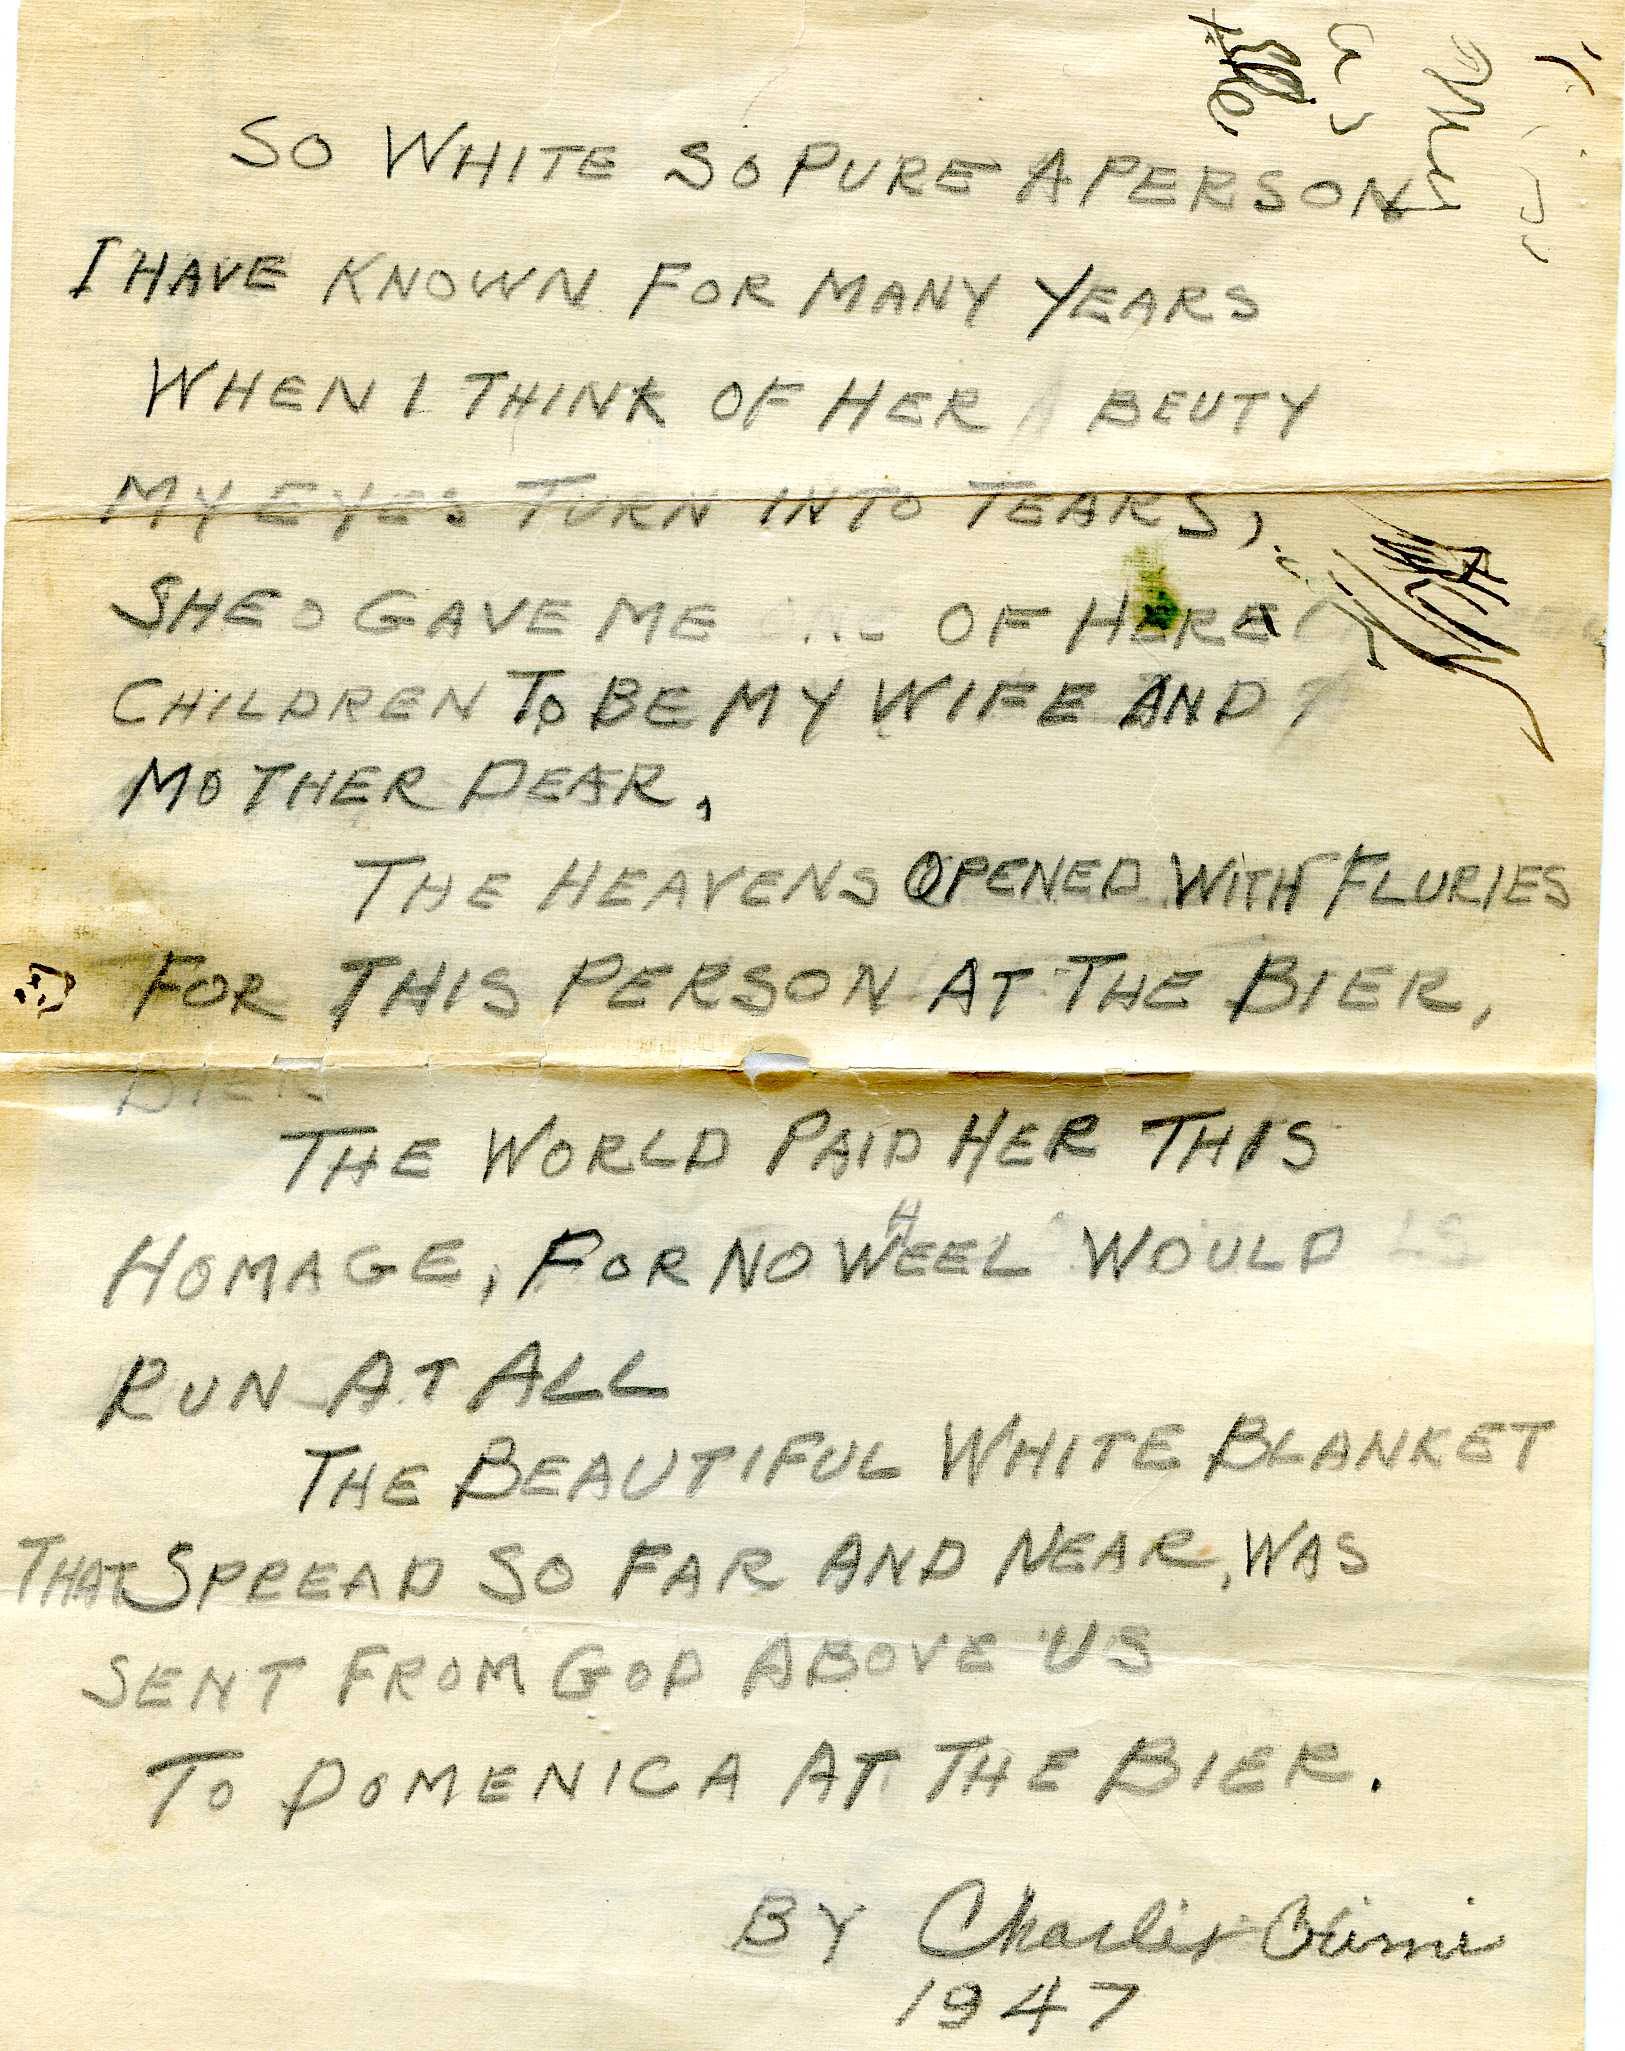 SO WHITE SO PURE A PERSON
I HAVE KNOWN FOR MANY YEARS
WHEN I THINK OF HER BEUTY
MY EYES TURN INTO TEARS,
SHE GAVE ME OF HERE
CHILDREN TO BE MY WIFE AND
MOTHER DEAR,
THE HEAVENS OPENED WITH FLURIES
FOR THIS PERSON AT THE BIER,
BIER
THE WORLD PAID HER THIS
HOMAGE, FOR NO WHEEL WOULD
RUN AT ALL
THE BEAUTIFUL WHITE BLANKET
THAT SPREAD SO FAR AND NEAR, WAS
SENT FROM GOD ABOVE US
TO DOMENICA AT THE BIER.
BY Charlie
1947